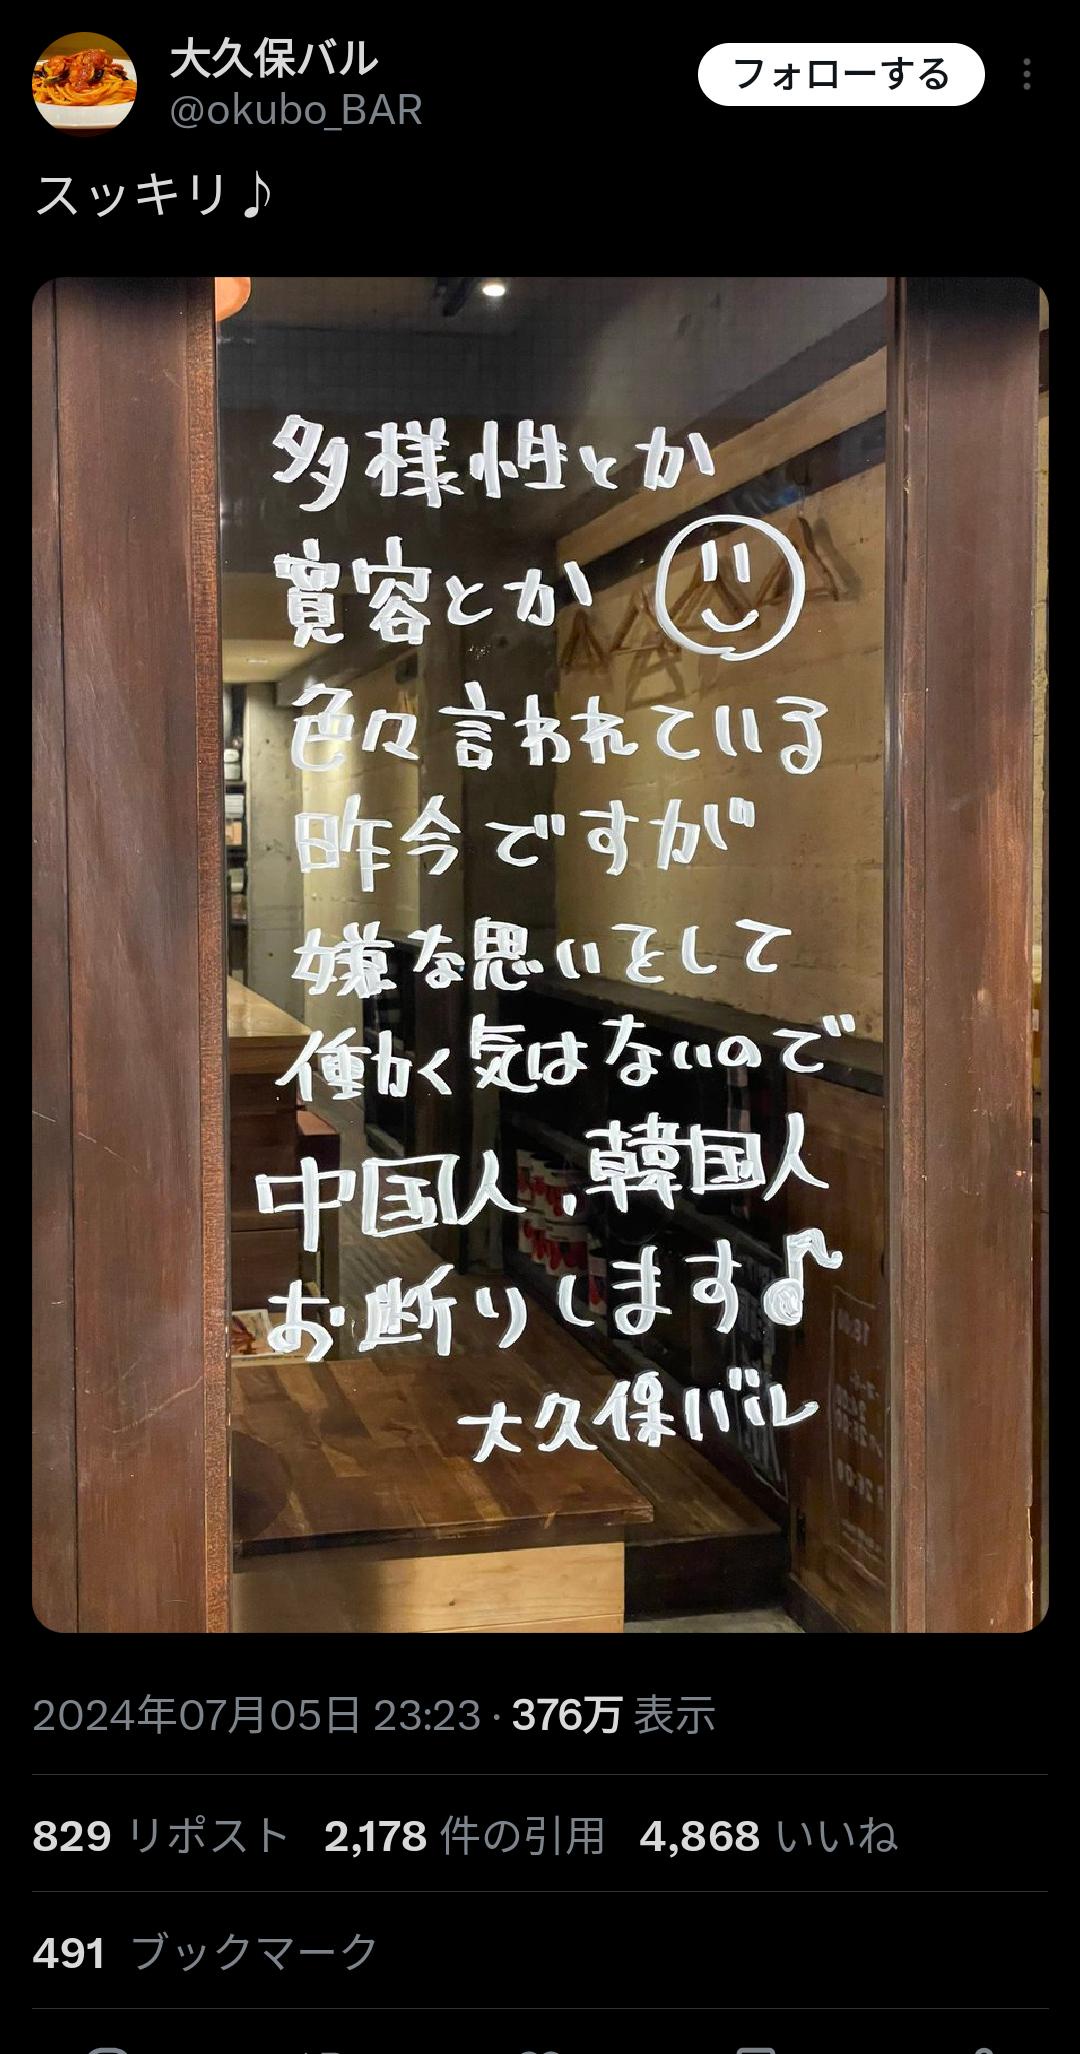 大久保バル
フォローする
@okubo_BAR
スッキリ♪
多様性とか
寛容とか
色々言われている
昨今ですが
嫌な思いをして
働く気はないので
中国人、韓国人
お断りします♪
大久保バル
2024年07月05日 23:23 · 376万 表示
829 リポスト 2,178 件の引用 4,868 いいね
491 ブックマーク